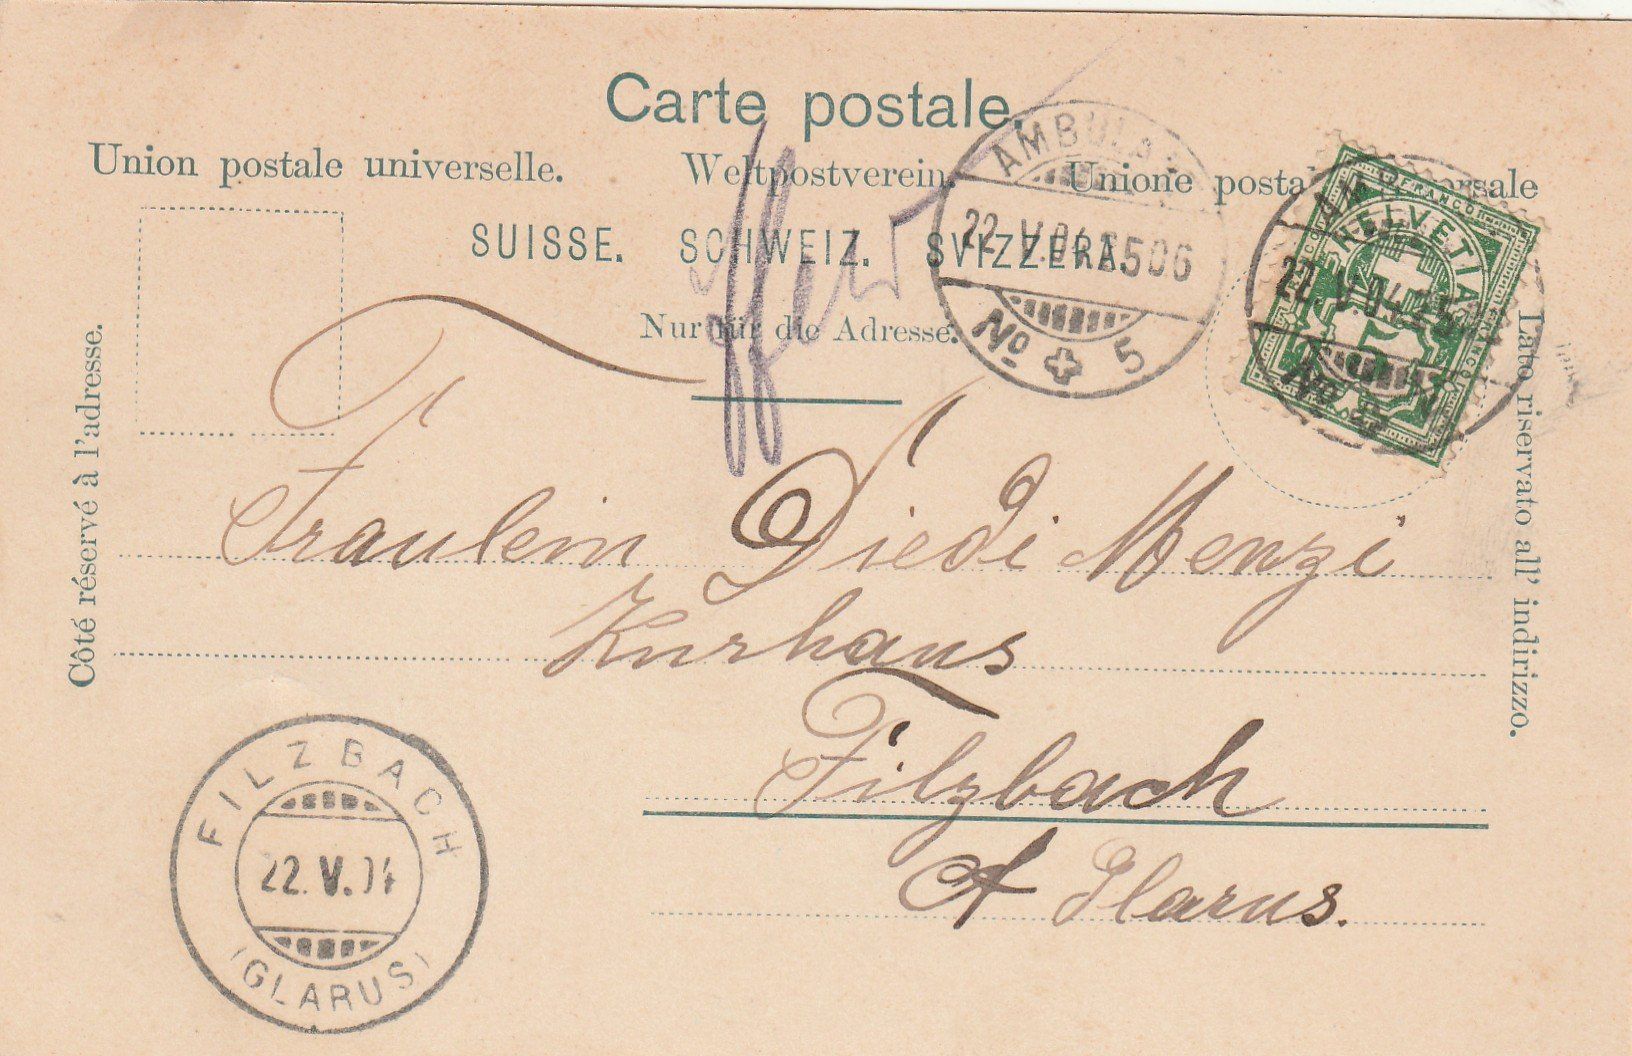 Carte postale.
Union postale universelle. Weltpostverein. Unione postale universale
SUISSE. SCHWEIZ. SVIZZERA.
Nur für die Adresse.
Côté réservé à l'adresse.
Lato riservato all' indirizzo.
AMBULANT
22.V.04 506
No 5
FRANCO
HELVETIA
FRANCO
22.V.04
No 5
Fräulein Diedi Menzi
Kurhaus
Filzbach
Ct Glarus.
FILZBACH
22.V.04
(GLARUS)